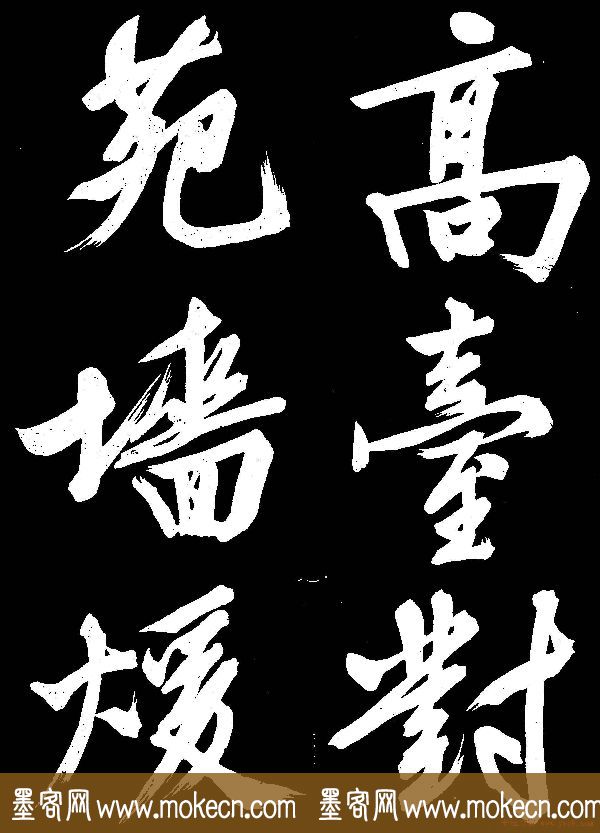 高臺對
苑墻煖
墨客网 www.mokecn.com 墨客网 www.mokecn.com